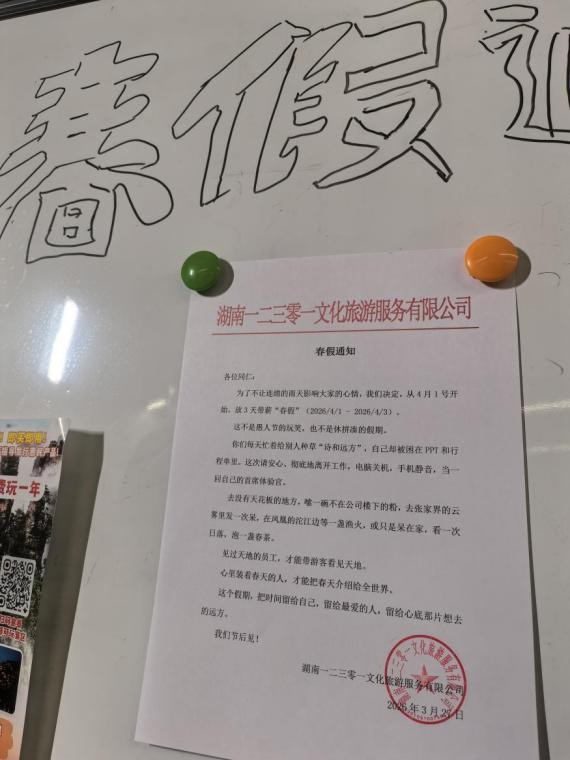 春假通
湖南一二三零一文化旅游服务有限公司
春假通知
各位同仁：
为了不让连绵的雨天影响大家的心情，我们决定，从4月1号开
始，放3天带薪“春假”（2026/4/1 - 2026/4/3）。
这不是愚人节的玩笑，也不是休拼凑的假期。
你们每天忙着给别人种草“诗和远方”，自己却被困在 PPT 和行
程单里。这次请安心、彻底地离开工作，电脑关机，手机静音，当一
回自己的首席体验官。
去没有天花板的地方，嗦一碗不在公司楼下的粉，去张家界的云
雾里发一次呆，在凤凰的沱江边等一盏渔火，或只是呆在家，看一次
日落，泡一盏春茶。
见过天地的员工，才能带游客看见天地。
心里装着春天的人，才能把春天介绍给全世界。
这个假期，把时间留给自己，留给最爱的人，留给心底那片想去
的远方。
我们节后见！
湖南一二三零一文化旅游服务有限公司
2026年3月27日
费玩一年